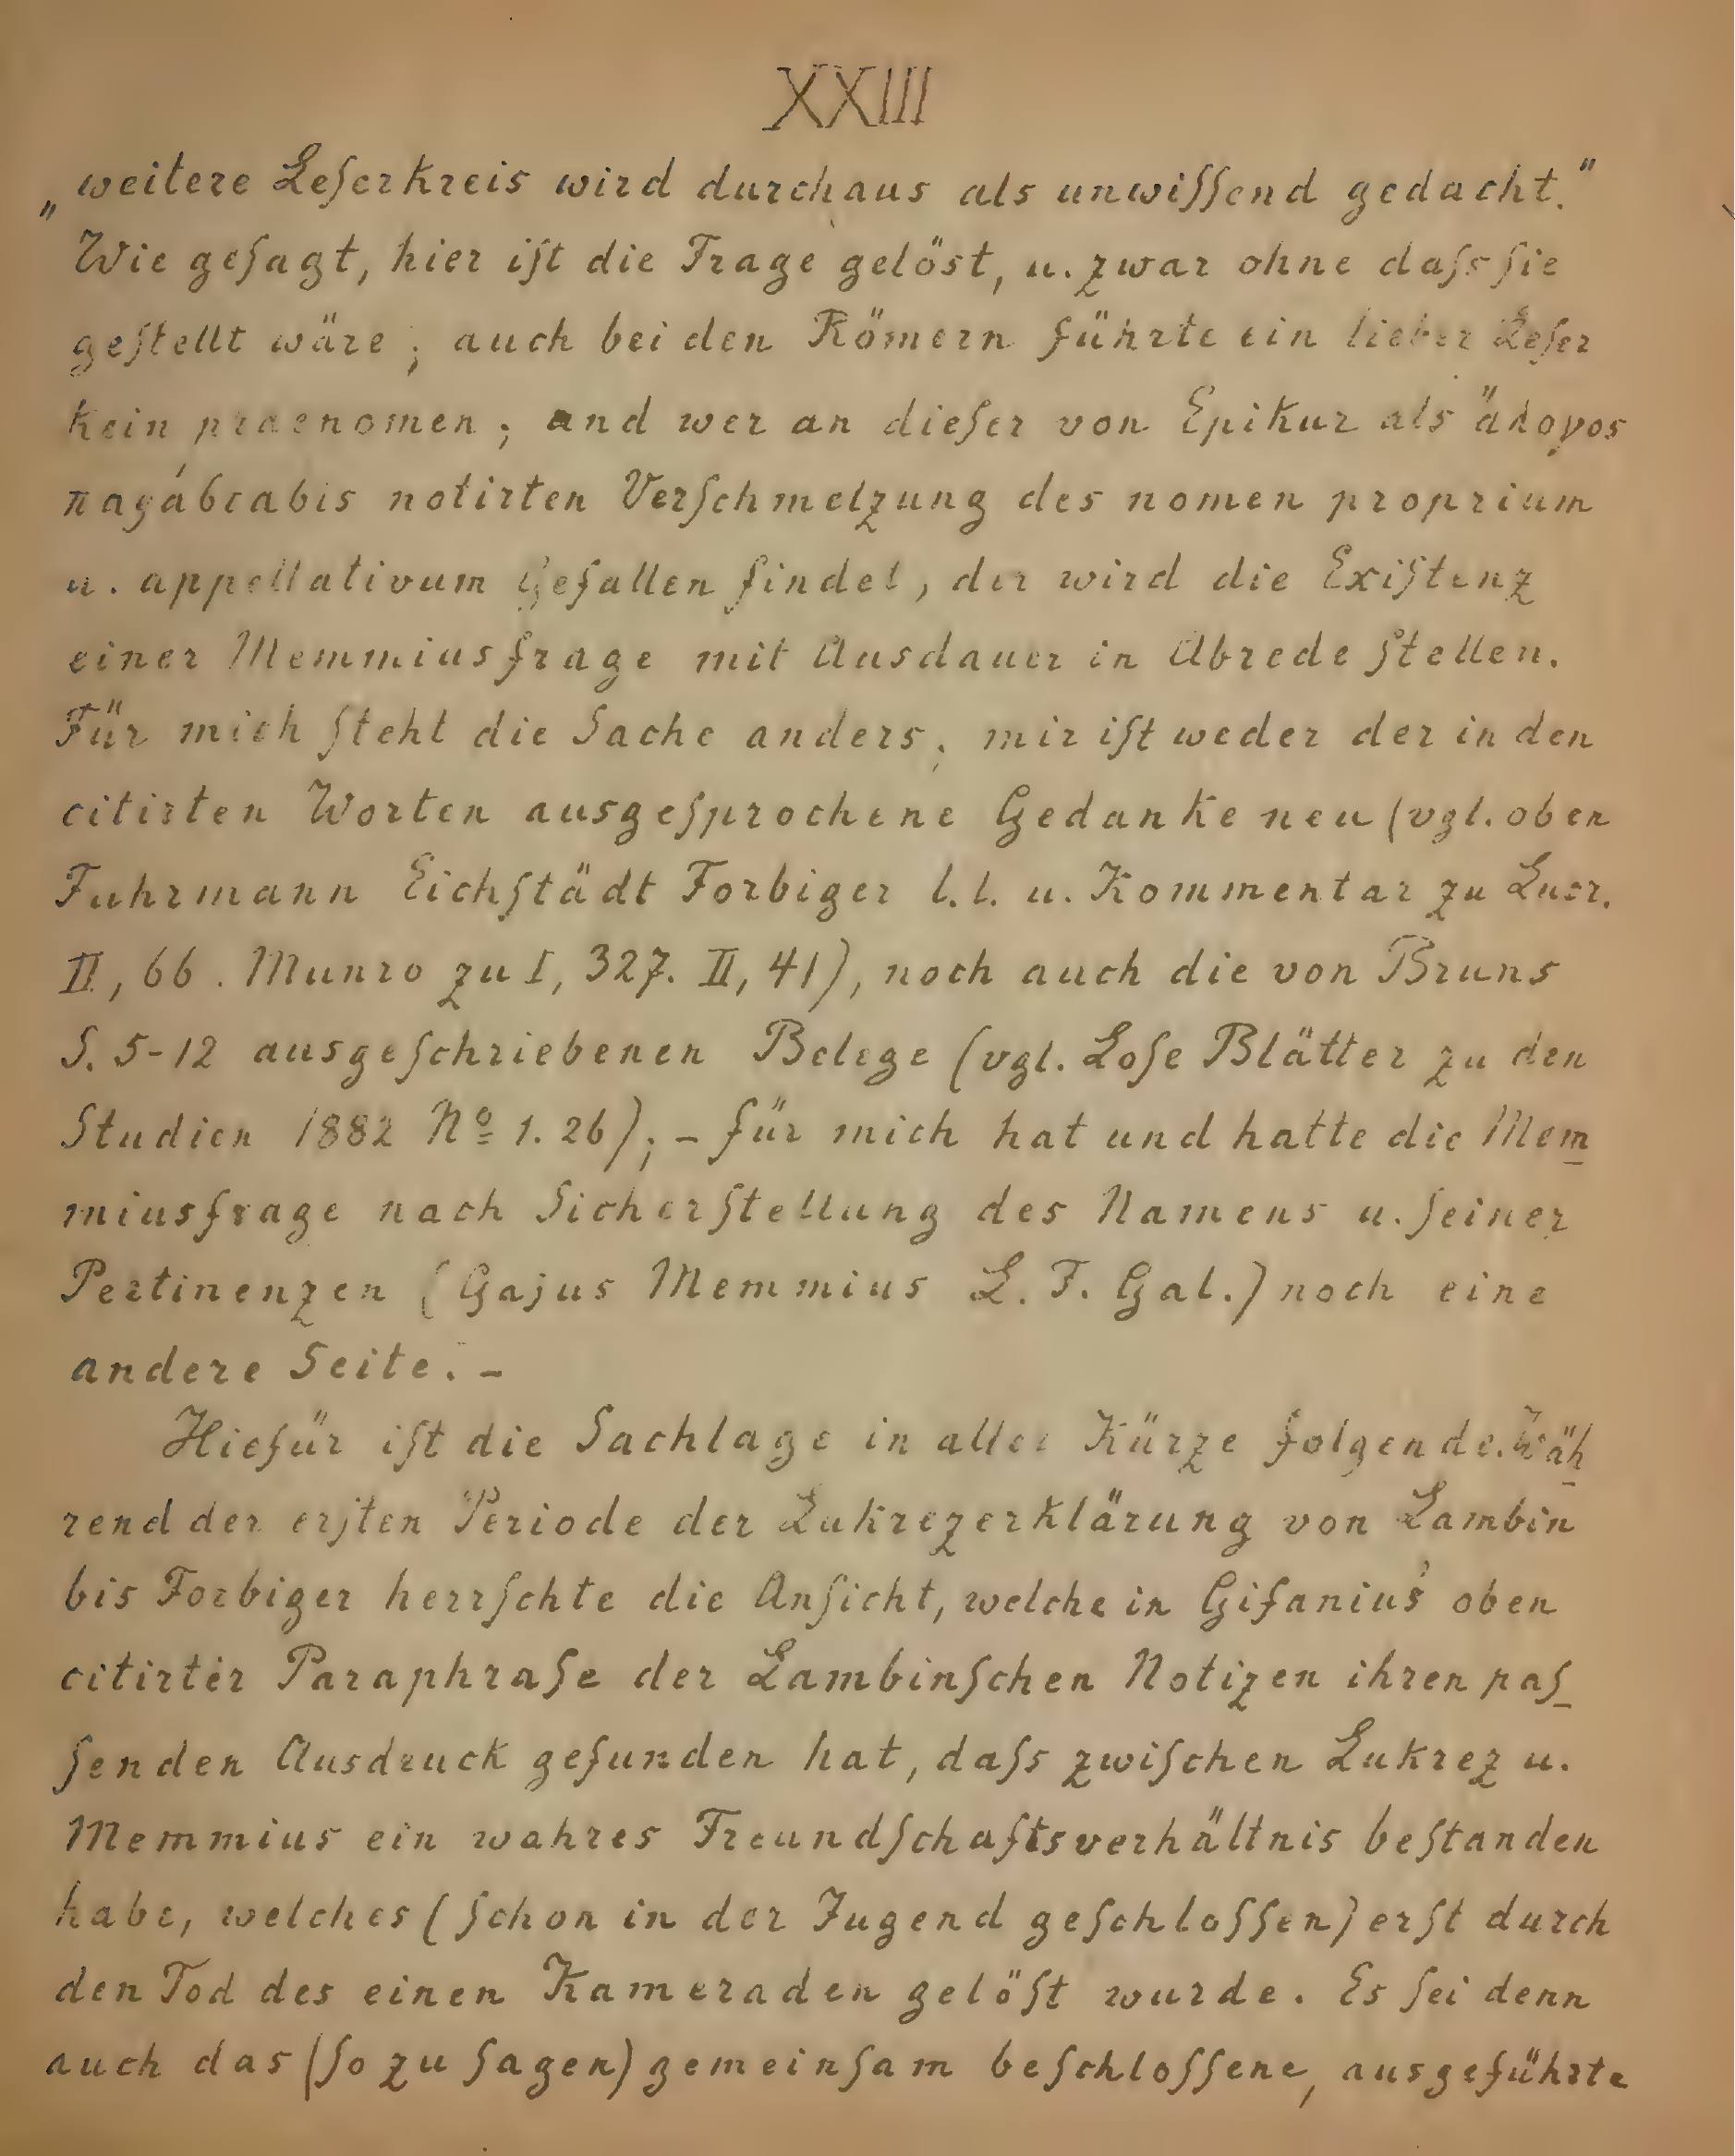 XXIII
„weitere Leſerkreis wird durchaus als unwiſſend gedacht."
Wie geſagt, hier iſt die Frage gelöst, u. zwar ohne daſs ſie
geſtellt wäre; auch bei den Römern führte ein lieber Leſer
kein praenomen; und wer an dieſer von Epikur als ἄλογος
παράβασις notirten Verſchmelzung des nomen proprium
u. appellativum Gefallen findet, der wird die Exiſtenz
einer Memmiusfrage mit Ausdauer in Abrede ſtellen.
Für mich ſteht die Sache anders; mir iſt weder der in den
citirten Worten ausgeſprochene Gedanke neu (vgl. oben
Fuhrmann Eichſtädt Forbiger l.l. u. Kommentar zu Lucr.
II, 66. Munro zu I, 327. II, 41), noch auch die von Bruns
S. 5-12 ausgeſchriebenen Belege (vgl. Loſe Blätter zu den
Studien 1882 Nº 1. 26); – für mich hat und hatte die Mem
miusfrage nach Sicherſtellung des Namens u. ſeiner
Pertinenzen (Gajus Memmius L. F. Gal.) noch eine
andere Seite. –
Hiefür iſt die Sachlage in aller Kürze folgende. Wäh
rend der erſten Periode der Lukrezerklärung von Lambin
bis Forbiger herrſchte die Anſicht, welche in Gifanius' oben
citirter Paraphraſe der Lambinſchen Notizen ihren paſ
ſenden Ausdruck gefunden hat, daſs zwiſchen Lukrez u.
Memmius ein wahres Freundſchaftsverhältnis beſtanden
habe, welches (ſchon in der Jugend geſchloſſen) erſt durch
den Tod des einen Kameraden gelöſt wurde. Es ſei denn
auch das (ſo zu ſagen) gemeinſam beſchloſſene, ausgeführte